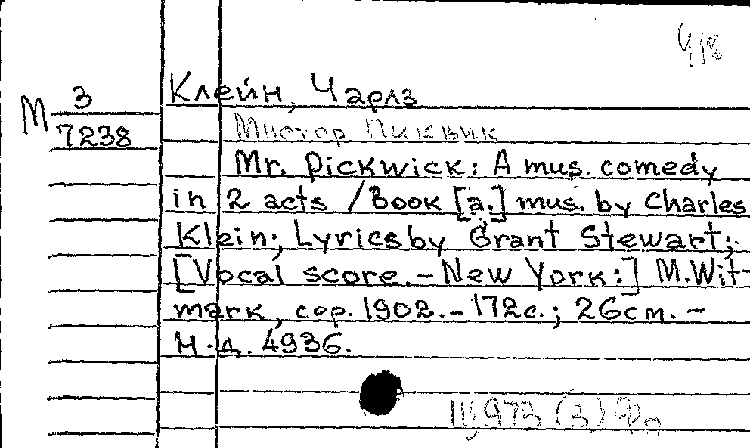 4/8
М 3
7238
Клейн, Чарлз
Мистер Пиквик
Mr. Pickwick: A mus. comedy
in 2 acts / Book [a.] mus. by Charles
Klein; Lyrics by Grant Stewart;
[Vocal score. - New York:] M. Wit-
mark, cop. 1902. - 172 с.; 26 см. -
Н.д. 4936.
973 (3)